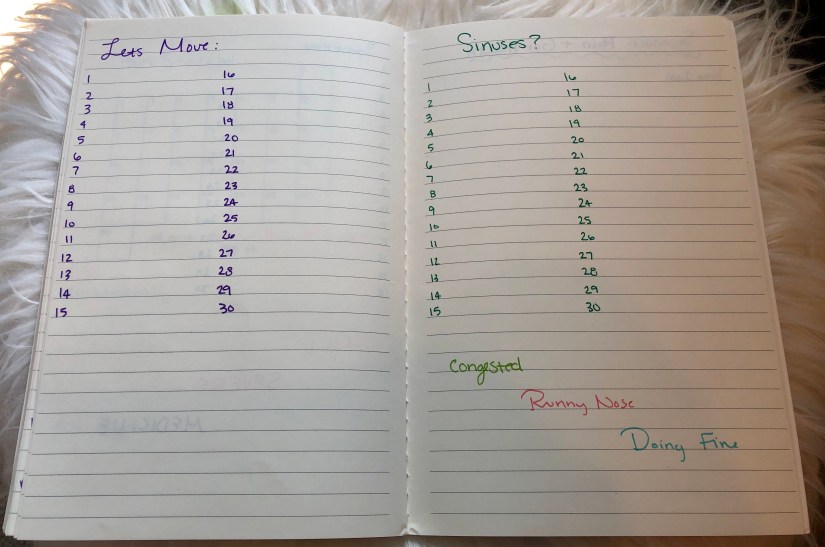 Lets Move:
1 16
2 17
3 18
4 19
5 20
6 21
7 22
8 23
9 24
10 25
11 26
12 27
13 28
14 29
15 30
Sinuses?
1 16
2 17
3 18
4 19
5 20
6 21
7 22
8 23
9 24
10 25
11 26
12 27
13 28
14 29
15 30
Congested
Runny Nose
Doing Fine
MEDICINE